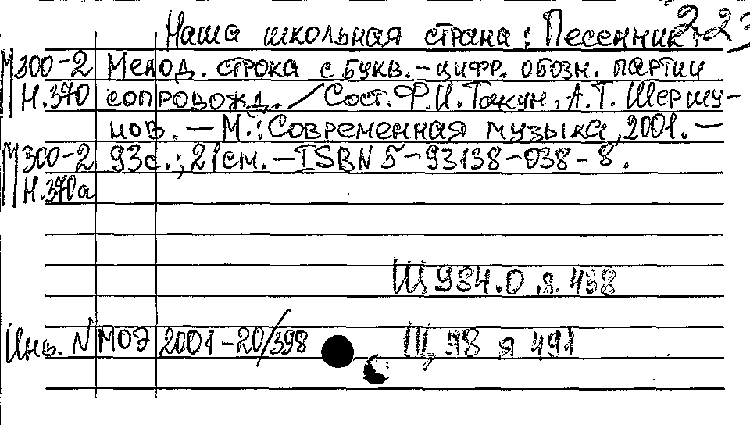 Наша школьная страна: Песенник. 2-23
М300-2 Мелод. строка с букв.-цифр. обозн. партии
Н.370 сопровожд. / Сост. Ф.И. Такун, А.Т. Шершу-
нов. — М.: Современная музыка, 2001. —
М300-2 93с.; 21см. — ISBN 5-93138-038-8.
Н.370а
Щ 984.0 я 438
Инв. N МОЭ 2001-20/398 Щ 98 я 491